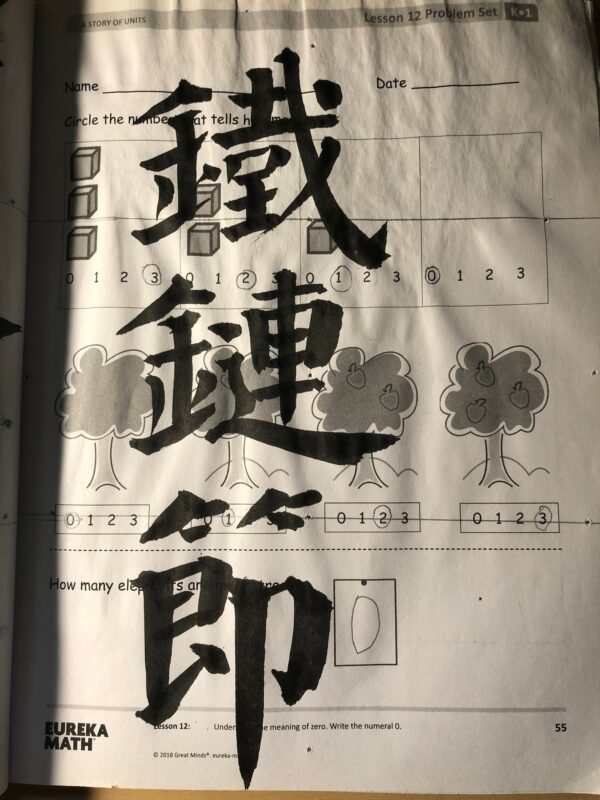 A STORY OF UNITS
Lesson 12 Problem Set K•1
Name Date
Circle the number that tells how
0 1 2 3 0 1 2 3 0 1 2 3 0 1 2 3
0 1 2 3 0 1 3 0 1 2 3 0 1 2 3
How many elephants are in
0
EUREKA MATH
Lesson 12: the meaning of zero. Write the numeral 0.
55
© 2018 Great Minds®. eureka-m
鐵
鏈
節